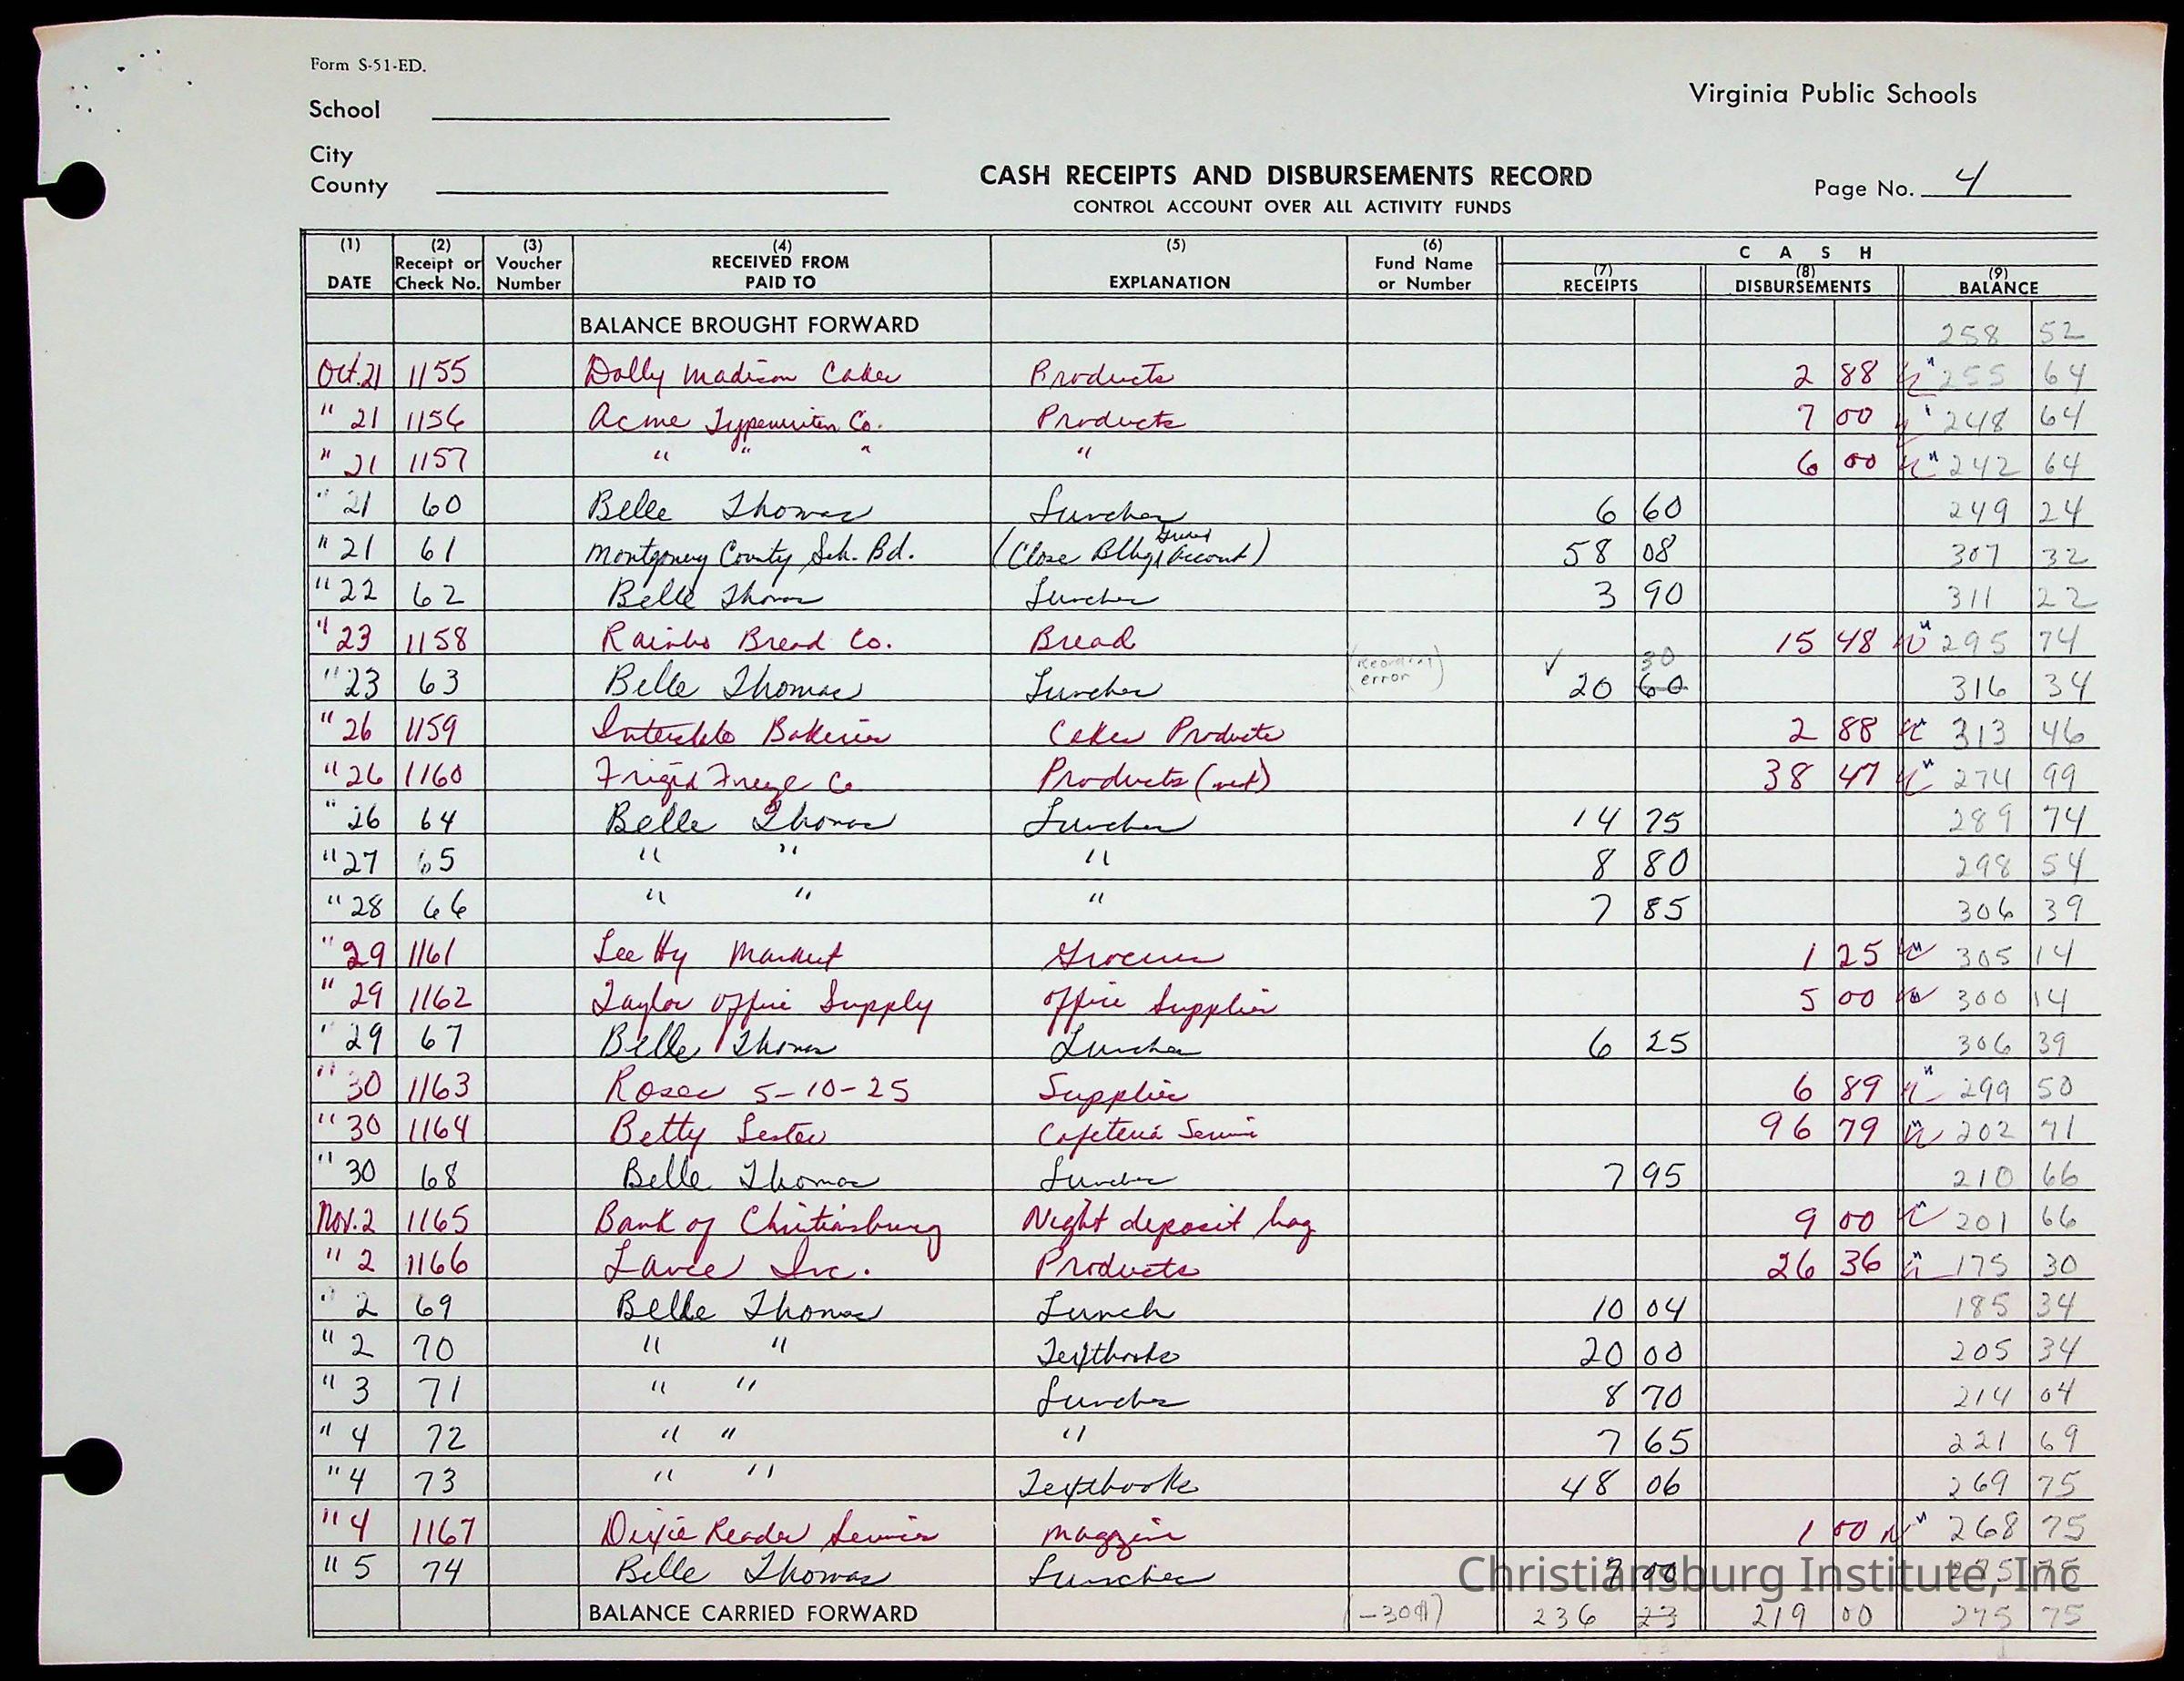 Form S-51-ED.
Virginia Public Schools
School
City
County
CASH RECEIPTS AND DISBURSEMENTS RECORD
CONTROL ACCOUNT OVER ALL ACTIVITY FUNDS
Page No. 4
(1) DATE (2) Receipt or Check No. (3) Voucher Number (4) RECEIVED FROM PAID TO (5) EXPLANATION (6) Fund Name or Number CASH (7) RECEIPTS (8) DISBURSEMENTS (9) BALANCE
BALANCE BROUGHT FORWARD 258 52
Oct. 21 1155 Dolly Madison Cakes Products 2 88 255 64
" 21 1156 Acme Typewriter Co. Products 7 00 248 64
" 21 1157 " " " " 6 00 242 64
" 21 60 Belle Thomas Lunches 6 60 249 24
" 21 61 Montgomery County Sch. Bd. (Close Account) 58 08 307 32
" 22 62 Belle Thomas Lunches 3 90 311 22
" 23 1158 Rainbo Bread Co. Bread 15 48 295 74
" 23 63 Belle Thomas Lunches (Recording error) ✓ 20 60 30 316 34
" 26 1159 Interstate Bakeries Cakes Products 2 88 313 46
" 26 1160 Frigid Freeze Co Products 38 47 274 99
" 26 64 Belle Thomas Lunches 14 75 289 74
" 27 65 " " " 8 80 298 54
" 28 66 " " " 7 85 306 39
" 29 1161 Lee Hy Market Groceries 1 25 305 14
" 29 1162 Taylor Office Supply Office Supplies 5 00 300 14
" 29 67 Belle Thomas Lunches 6 25 306 39
" 30 1163 Roses 5-10-25 Supplies 6 89 299 50
" 30 1164 Betty Lester Cafeteria Service 96 79 202 71
" 30 68 Belle Thomas Lunches 7 95 210 66
Nov. 2 1165 Bank of Christiansburg Night deposit bag 9 00 201 66
" 2 1166 Lance Inc. Products 26 36 175 30
" 2 69 Belle Thomas Lunch 10 04 185 34
" 2 70 " " Textbooks 20 00 205 34
" 3 71 " " Lunches 8 70 214 04
" 4 72 " " " 7 65 221 69
" 4 73 " " Textbooks 48 06 269 75
" 4 1167 Dixie Reader Service Magazine 1 00 268 75
" 5 74 Belle Thomas Lunches 7 00 275 75
BALANCE CARRIED FORWARD (-30¢) 236 23 219 00 275 75
Christiansburg Institute, Inc